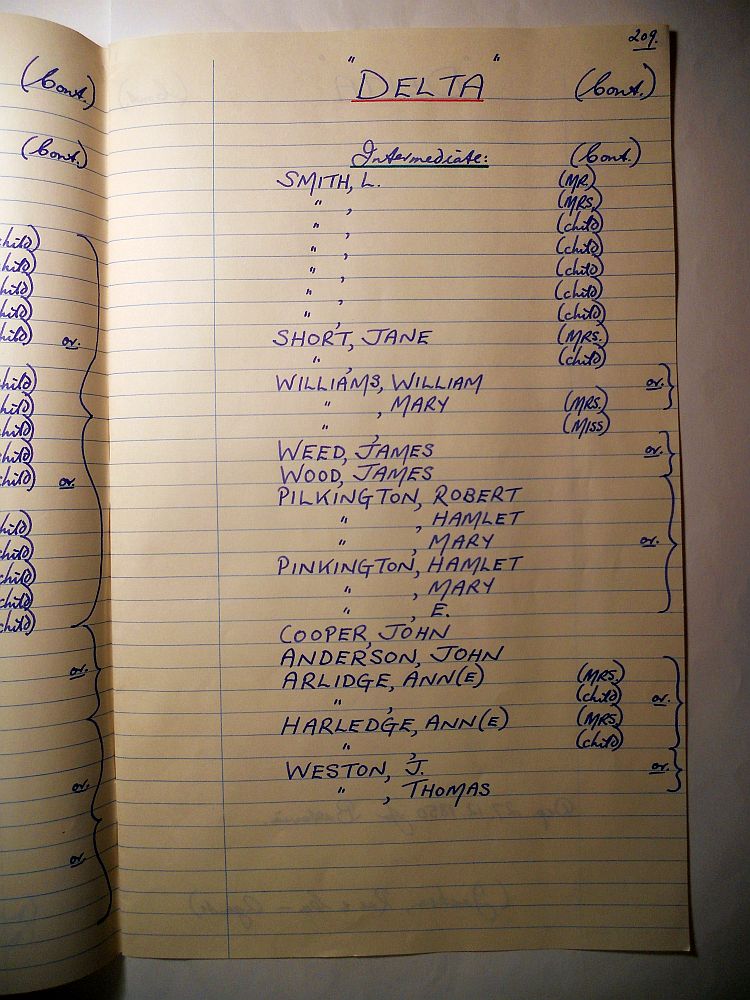 (Cont.)
(Cont.)
child)
child)
child)
child)
child) or.
child)
child)
child)
child)
child) or.
child)
child)
child)
child)
child)
or.
or.
or.
209.
"DELTA" (Cont.)
Intermediate: (Cont.)
SMITH, L. (MR.)
" , (MRS.)
" , (child)
" , (child)
" , (child)
" , (child)
" , (child)
SHORT, JANE (MRS.)
" , (child)
WILLIAMS, WILLIAM or.
" , MARY (MRS.)
" , (MISS)
WEED, JAMES or.
WOOD, JAMES
PILKINGTON, ROBERT
" , HAMLET
" , MARY or.
PINKINGTON, HAMLET
" , MARY
" , E.
COOPER, JOHN
ANDERSON, JOHN
ARLIDGE, ANN(E) (MRS.)
" , (child) or.
HARLEDGE, ANN(E) (MRS.)
" , (child)
WESTON, J. or.
" , THOMAS